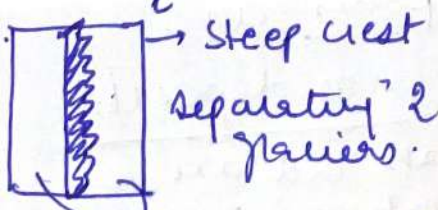 → steep crest
separating 2
glaciers.